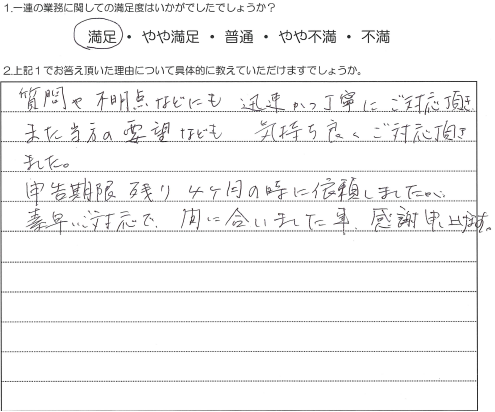 1.一連の業務に関しての満足度はいかがでしたでしょうか?
満足・ やや満足 ・ 普通 ・ やや不満 ・ 不満
2.上記1でお答え頂いた理由について具体的に教えていただけますでしょうか。
質問や不明点などにも 迅速かつ丁寧にご対応頂き
また当方の要望なども 気持ち良くご対応頂き
ました。
申告期限 残り 4ヶ月の時に依頼しましたが、
素早い対応で、間に合いました事、感謝申し上げます。